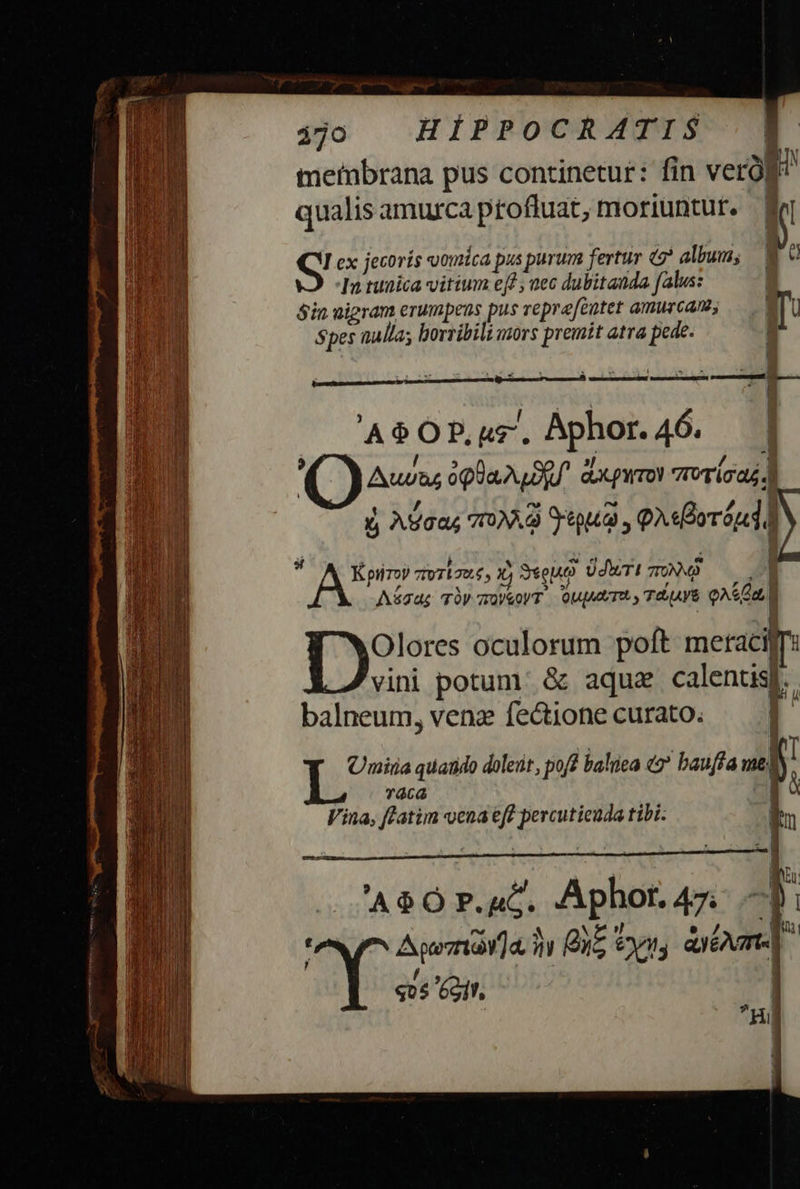 470 HIPPOCRATIS
membrana pus continetur: ſin verò
qualis amurca profluat, moriuntur.
SI ex jecoris vomica pus purum fertur & album,
In tunica vitium eſt, nec dubitanda ſalus:
Sin nigram erumpens pus repræſentet amurcam,
Spes nulla; horribili mors premit atra pede.
ἈΦΟΡ. μϛʹ. Aphor. 46.
Ὀδύνας ὀφθαλμῶν ἄκρητον ποτίσας
ϗ λούσας πολλῷ θερμῷ, φλεβοτόμ
Ἄκρητον ποτίσας, ϗ θερμῷ ὕδατι πολλῷ
Λούσας τὸν πονέοντ' ὄμματα, τάμνε φλέβα
DOlores oculorum poſt meraci
vini potum & aquæ calentis
balneum, venæ ſectione curato.
LUmina quando dolent, poſt balnea & hauſta me
raca
Vina, ſtatim vena eſt percutienda tibi.
ἈΦΟΡ. μζ. Aphor. 47.
Ὑδρωπιῶντα ἢν βὴξ ἔχῃ, ἀνέλπι
στός ἐστιν.